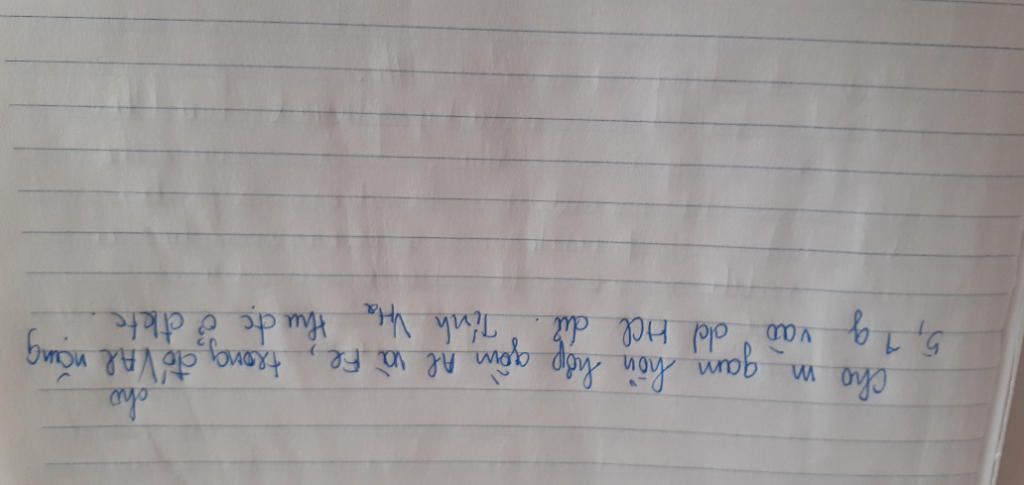 cho
Cho m gam hỗn hợp gồm Al và Fe, trong đó V Al nặng
5,1 g vào dd HCl dư. Tính VH₂ thu đc ở đktc.